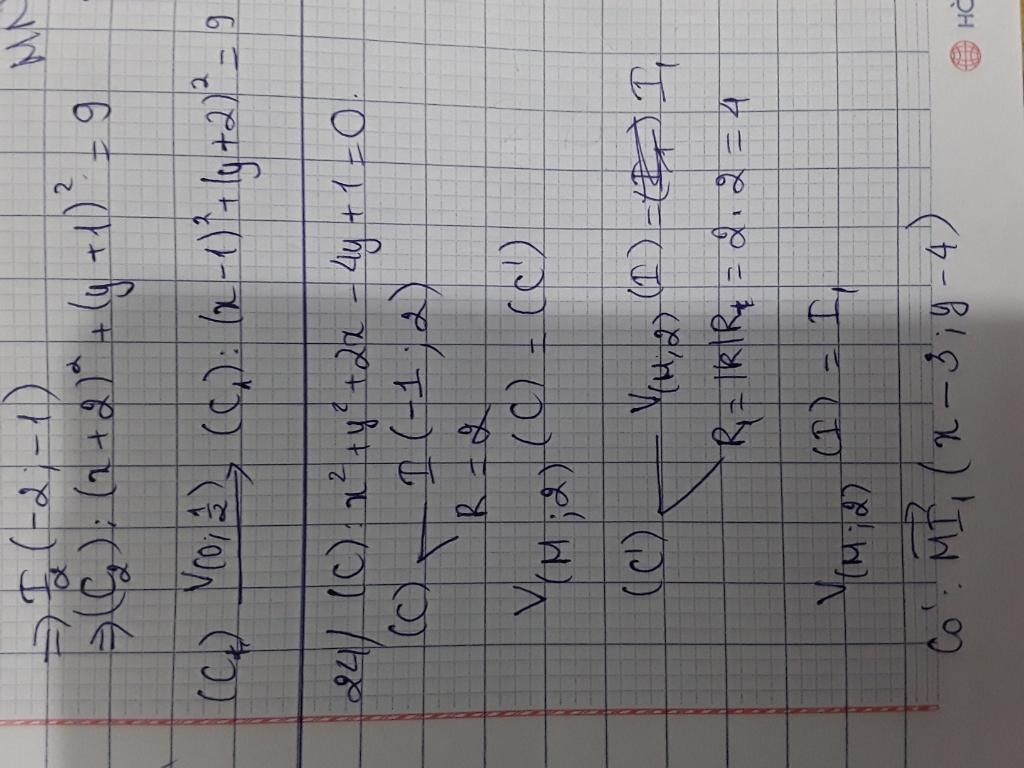 ⇒ I₂ (-2; -1)
⇒ (C₂): (x+2)² + (y+1)² = 9
(C₁) V(O; 1/2) → (C₁): (x-1)² + (y+2)² = 9
24/ (C): x² + y² + 2x - 4y + 1 = 0.
(C) I (-1; 2)
R = 2
V(M; 2) (C) = (C')
(C') V(M; 2) (I) = I₁
R₁ = |k|R = 2.2 = 4
V(M; 2) (I) = I₁
Có: MI₁ (x - 3; y - 4)
HÒ